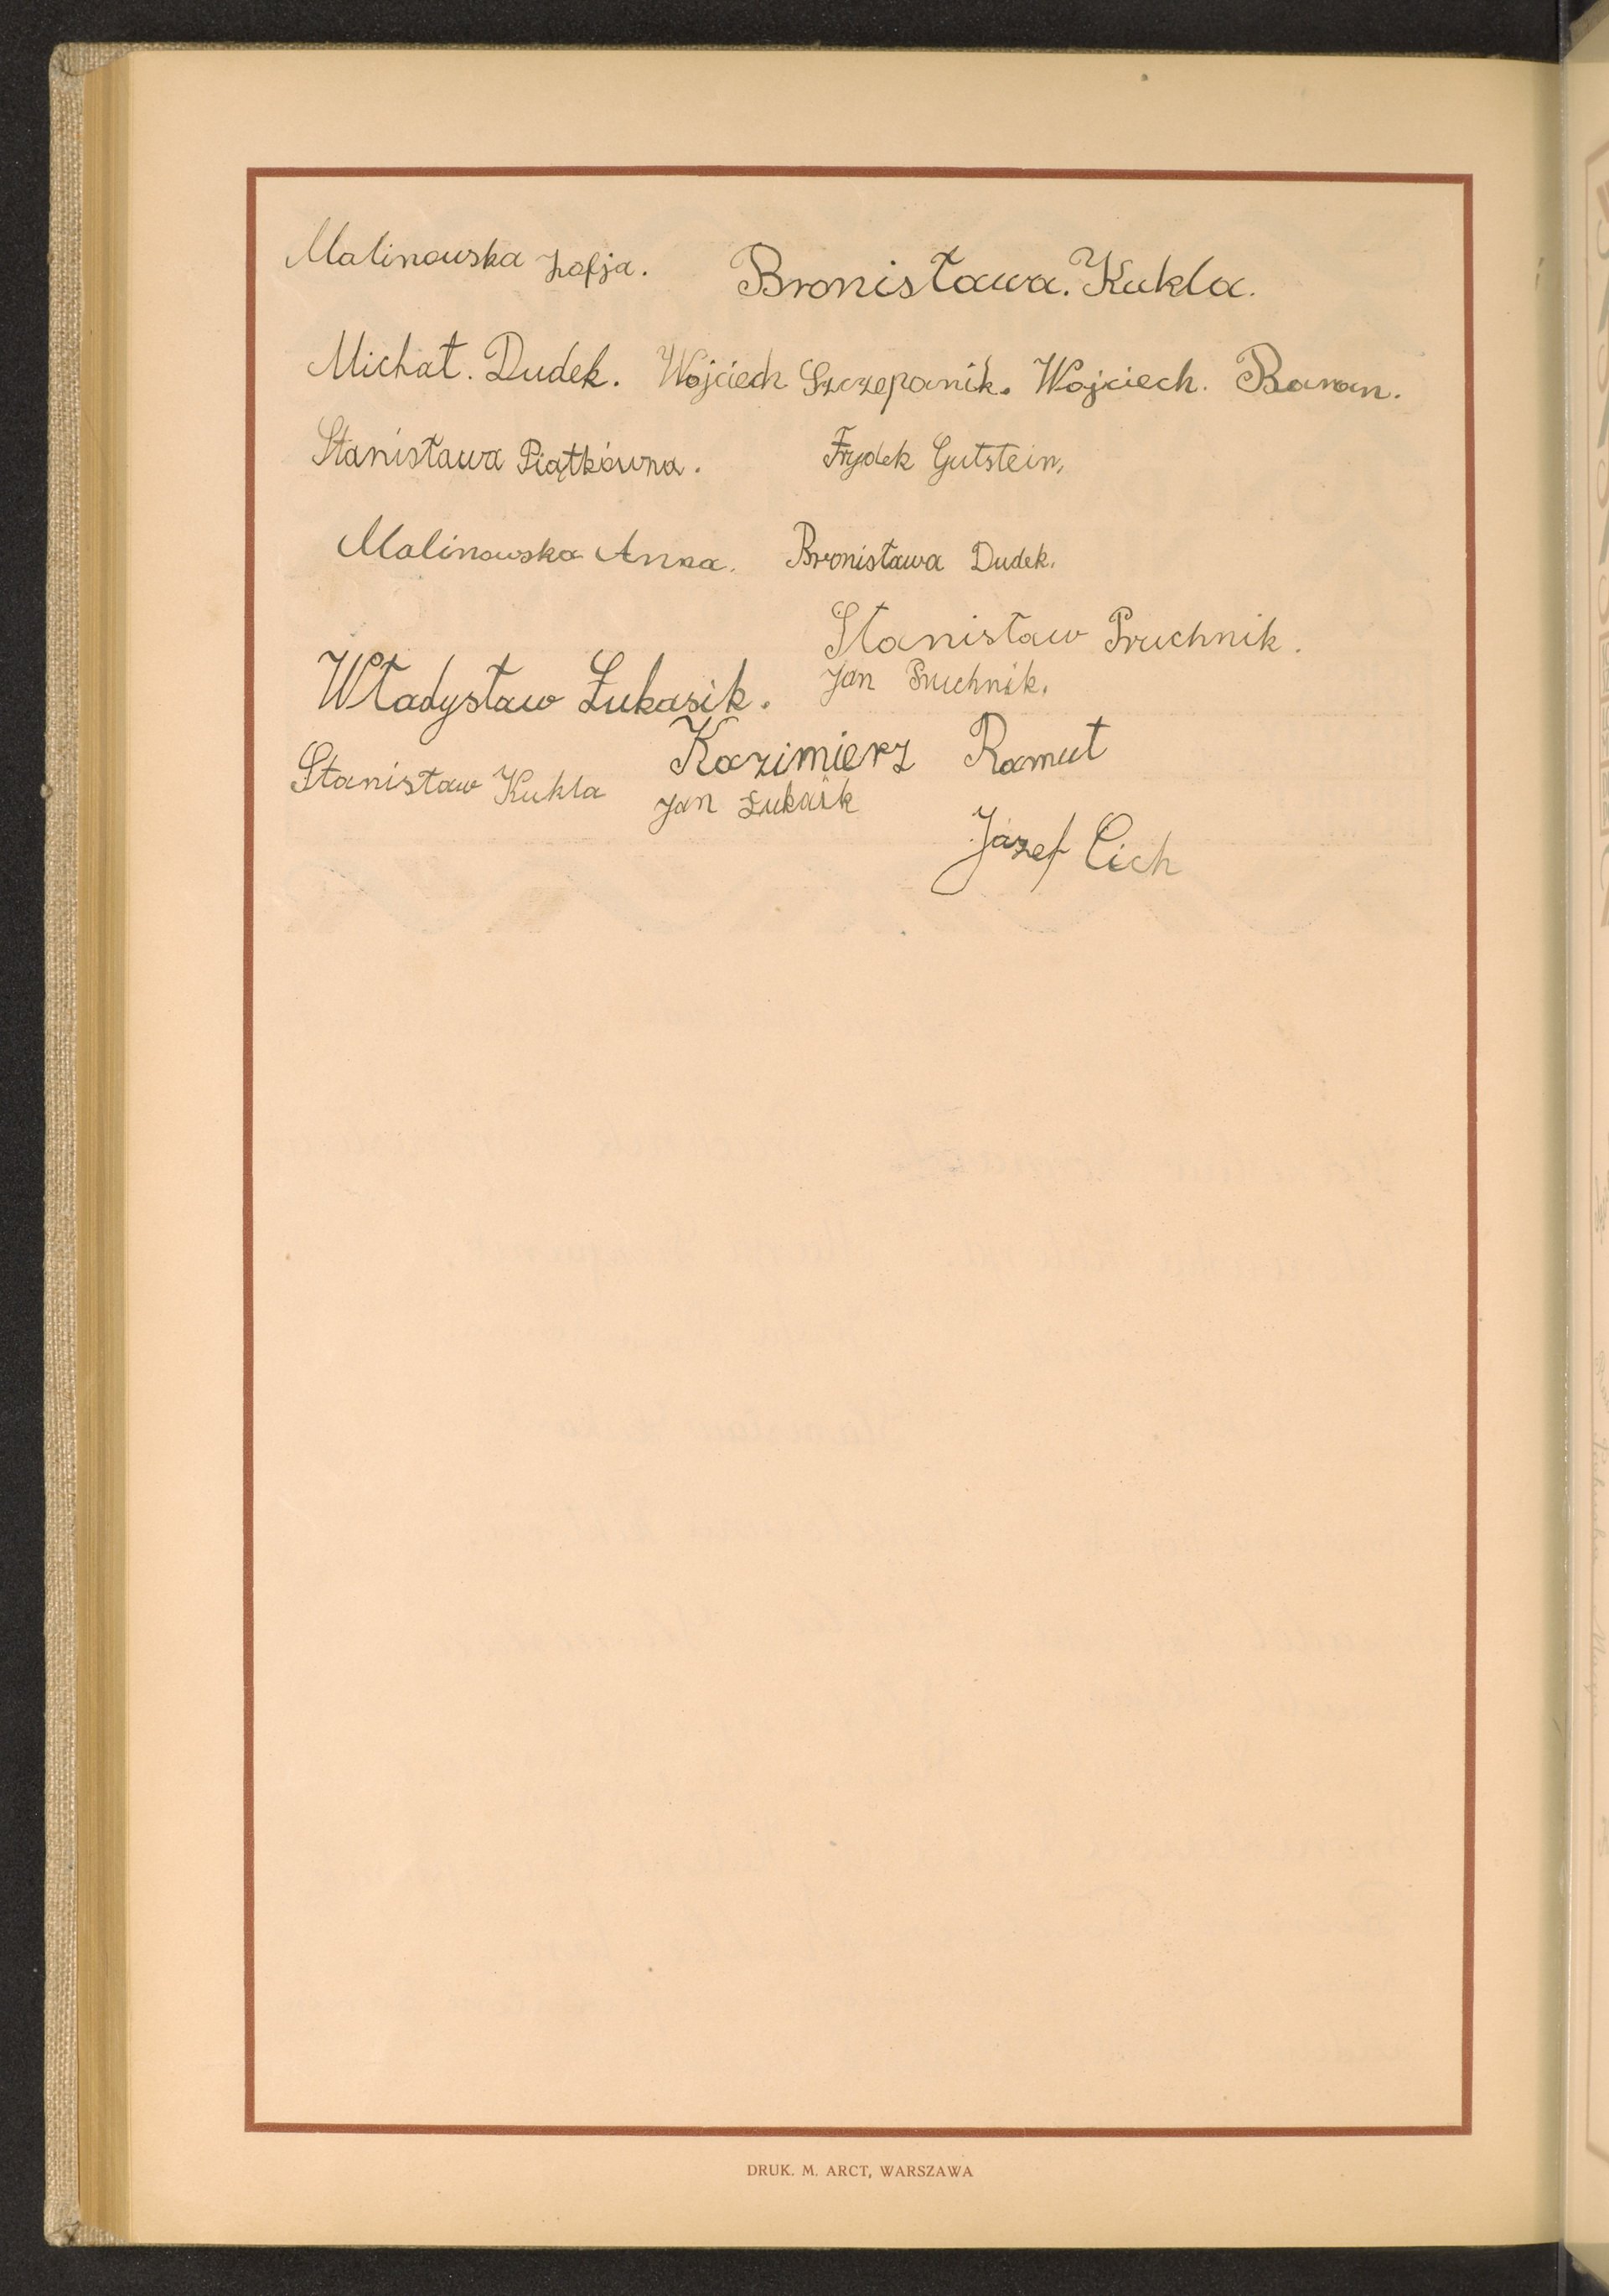 Malinowska Zofja. Bronisława. Kukla.
Michał. Dudek. Wojciech Szczepanik. Wojciech. Baran.
Stanisława Piątkówna. Frydek Gutstein,
Malinowska Anna. Bronisława Dudek.
Stanisław Pruchnik.
Władysław Łukasik. Jan Pruchnik.
Kazimierz Ramut
Stanisław Kukla Jan Łukaśik
Józef Cich
DRUK. M. ARCT, WARSZAWA